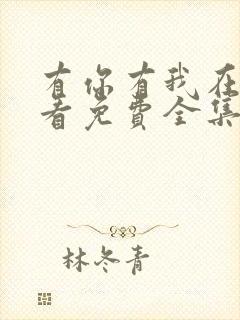 有你有我在
看免费全集
林冬青